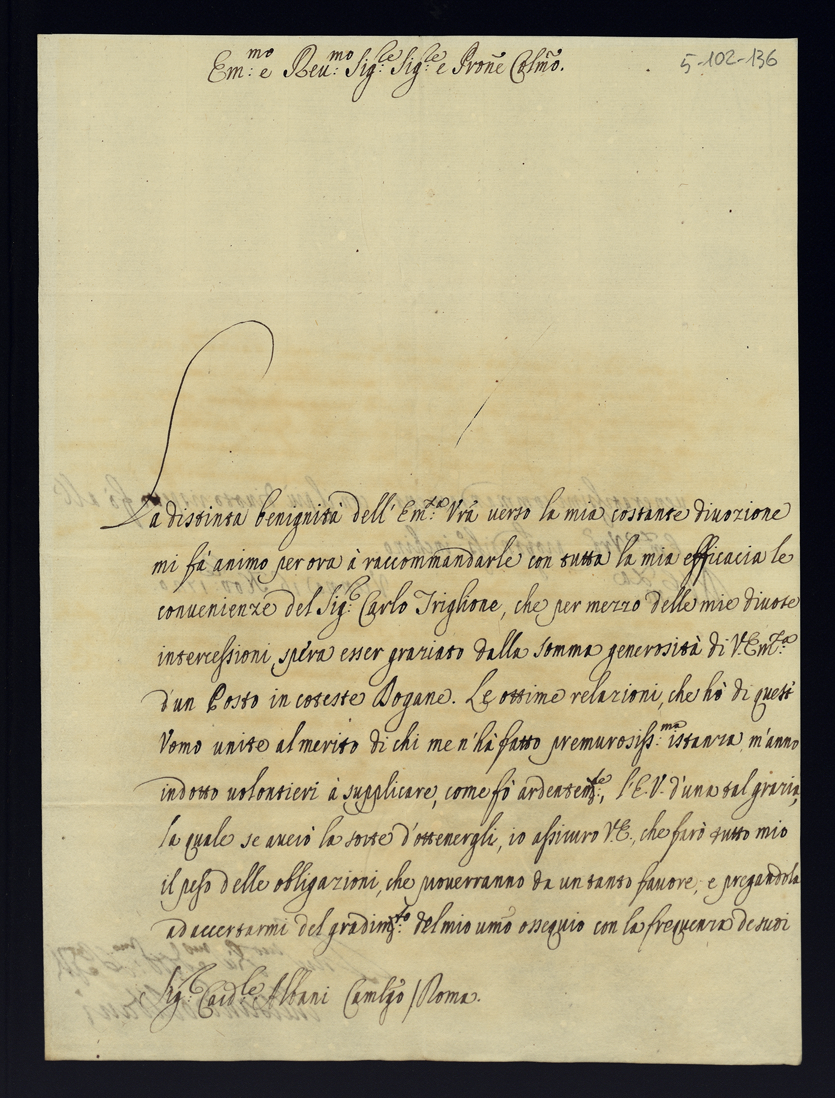 5-102-136
Em.mo e Reu.mo Sig.re Sig.re e Prone Colmo.
La distinta benignità dell'Em.za Vrã verso la mia costante divozione
mi fà animo per ora à raccommandarle con tutta la mia efficacia le
convenienze del Sig.r Carlo Triglione, che per mezzo delle mie divote
intercessioni spera esser graziato dalla somma generosità di V. Em.za
d'un Posto in coteste Dogane. Le ottime relazioni, che hò di quest'
Vomo unite al merito di chi me n'hà fatto premurosiss.ma istanza, m'anno
indotto volontieri à supplicare, come fò ardentem.te, l'E.V. d'una tal grazia,
la quale se averò la sorte d'ottenergli, io assicuro V.E., che farò tutto mio
il peso delle obligazioni, che proverranno da un tanto favore, e pregandola
ad accertarmi del gradim.to del mio umo ossequio con la frequenza de suoi
Sig.r Card.le Albani Camlgo / Roma.